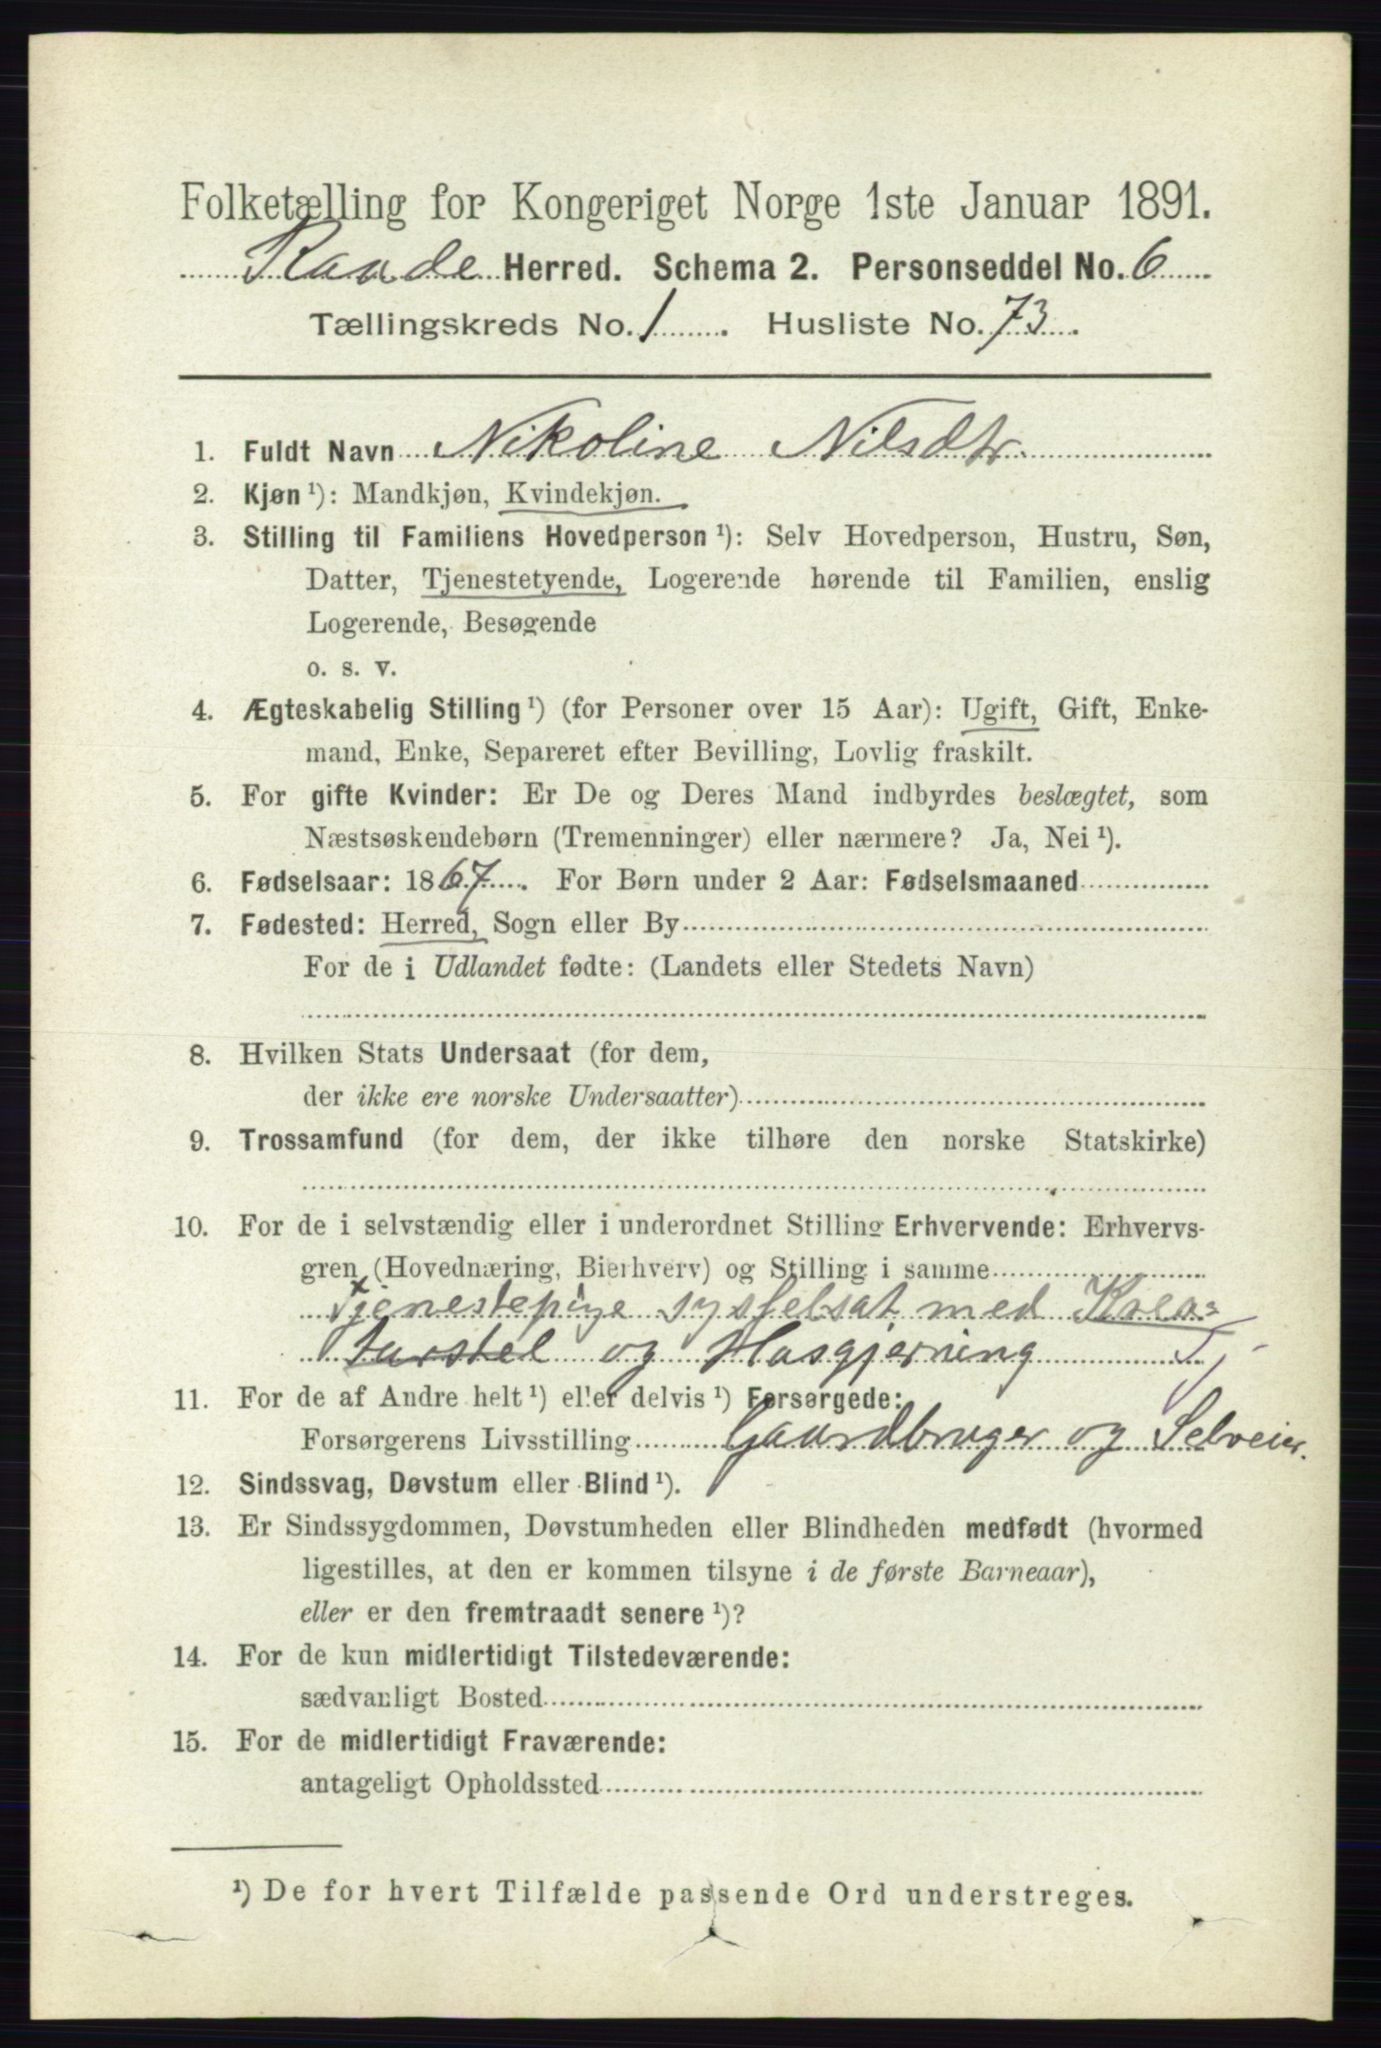 Folketælling for Kongeriget Norge 1ste Januar 1891.
Raade Herred. Schema 2. Personseddel No. 6
Tællingskreds No. 1. Husliste No. 73.
1. Fuldt Navn Nikoline Nilsdtr.
2. Kjøn ¹): Mandkjøn, Kvindekjøn.
3. Stilling til Familiens Hovedperson ¹): Selv Hovedperson, Hustru, Søn,
Datter, Tjenestetyende, Logerende hørende til Familien, enslig
Logerende, Besøgende
o. s. v.
4. Ægteskabelig Stilling ¹) (for Personer over 15 Aar): Ugift, Gift, Enke-
mand, Enke, Separeret efter Bevilling, Lovlig fraskilt.
5. For gifte Kvinder: Er De og Deres Mand indbyrdes beslægtet, som
Næstsøskendebørn (Tremenninger) eller nærmere? Ja, Nei ¹).
6. Fødselsaar: 1867. For Børn under 2 Aar: Fødselsmaaned
7. Fødested: Herred, Sogn eller By
For de i Udlandet fødte: (Landets eller Stedets Navn)
8. Hvilken Stats Undersaat (for dem,
der ikke ere norske Undersaatter)
9. Trossamfund (for dem, der ikke tilhøre den norske Statskirke)
10. For de i selvstændig eller i underordnet Stilling Erhvervende: Erhvervs-
gren (Hovednæring, Bierhverv) og Stilling i samme
Tjenestepige sysselsat med Krea=
turstel og Husgjerning Tj
11. For de af Andre helt ¹) eller delvis ¹) Forsørgede:
Forsørgerens Livsstilling Gaardbruger og Selveier.
12. Sindssvag, Døvstum eller Blind ¹).
13. Er Sindssygdommen, Døvstumheden eller Blindheden medfødt (hvormed
ligestilles, at den er kommen tilsyne i de første Barneaar),
eller er den fremtraadt senere ¹)?
14. For de kun midlertidigt Tilstedeværende:
sædvanligt Bosted
15. For de midlertidigt Fraværende:
antageligt Opholdssted
¹) De for hvert Tilfælde passende Ord understreges.